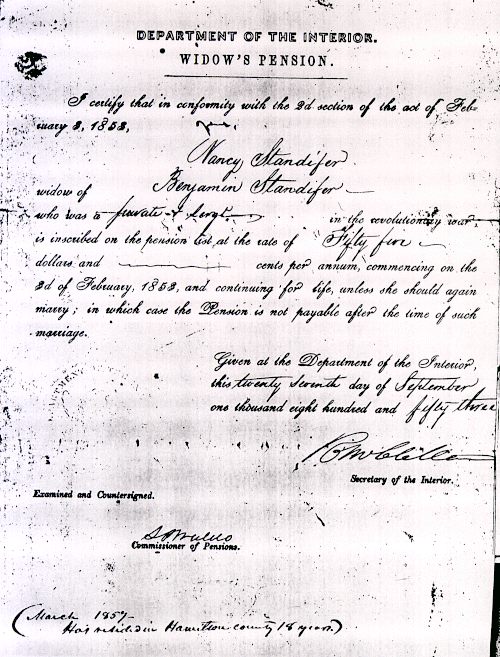 DEPARTMENT OF THE INTERIOR.
WIDOW'S PENSION.
I certify that in conformity with the 2d section of the act of Feb-
ruary 3, 1853,
Nancy Standifer
widow of Benjamin Standifer
who was a private & Sergt. in the revolutionary war,
is inscribed on the pension list at the rate of Fifty five
dollars and cents per annum, commencing on the
3d of February, 1853, and continuing for life, unless she should again
marry; in which case the Pension is not payable after the time of such
marriage.
Given at the Department of the Interior,
this twenty seventh day of September
one thousand eight hundred and fifty three
R McClelland
Secretary of the Interior.
Examined and Countersigned.
Commissioner of Pensions.
(March 1857
Has resided in Hamilton county 18 years.)